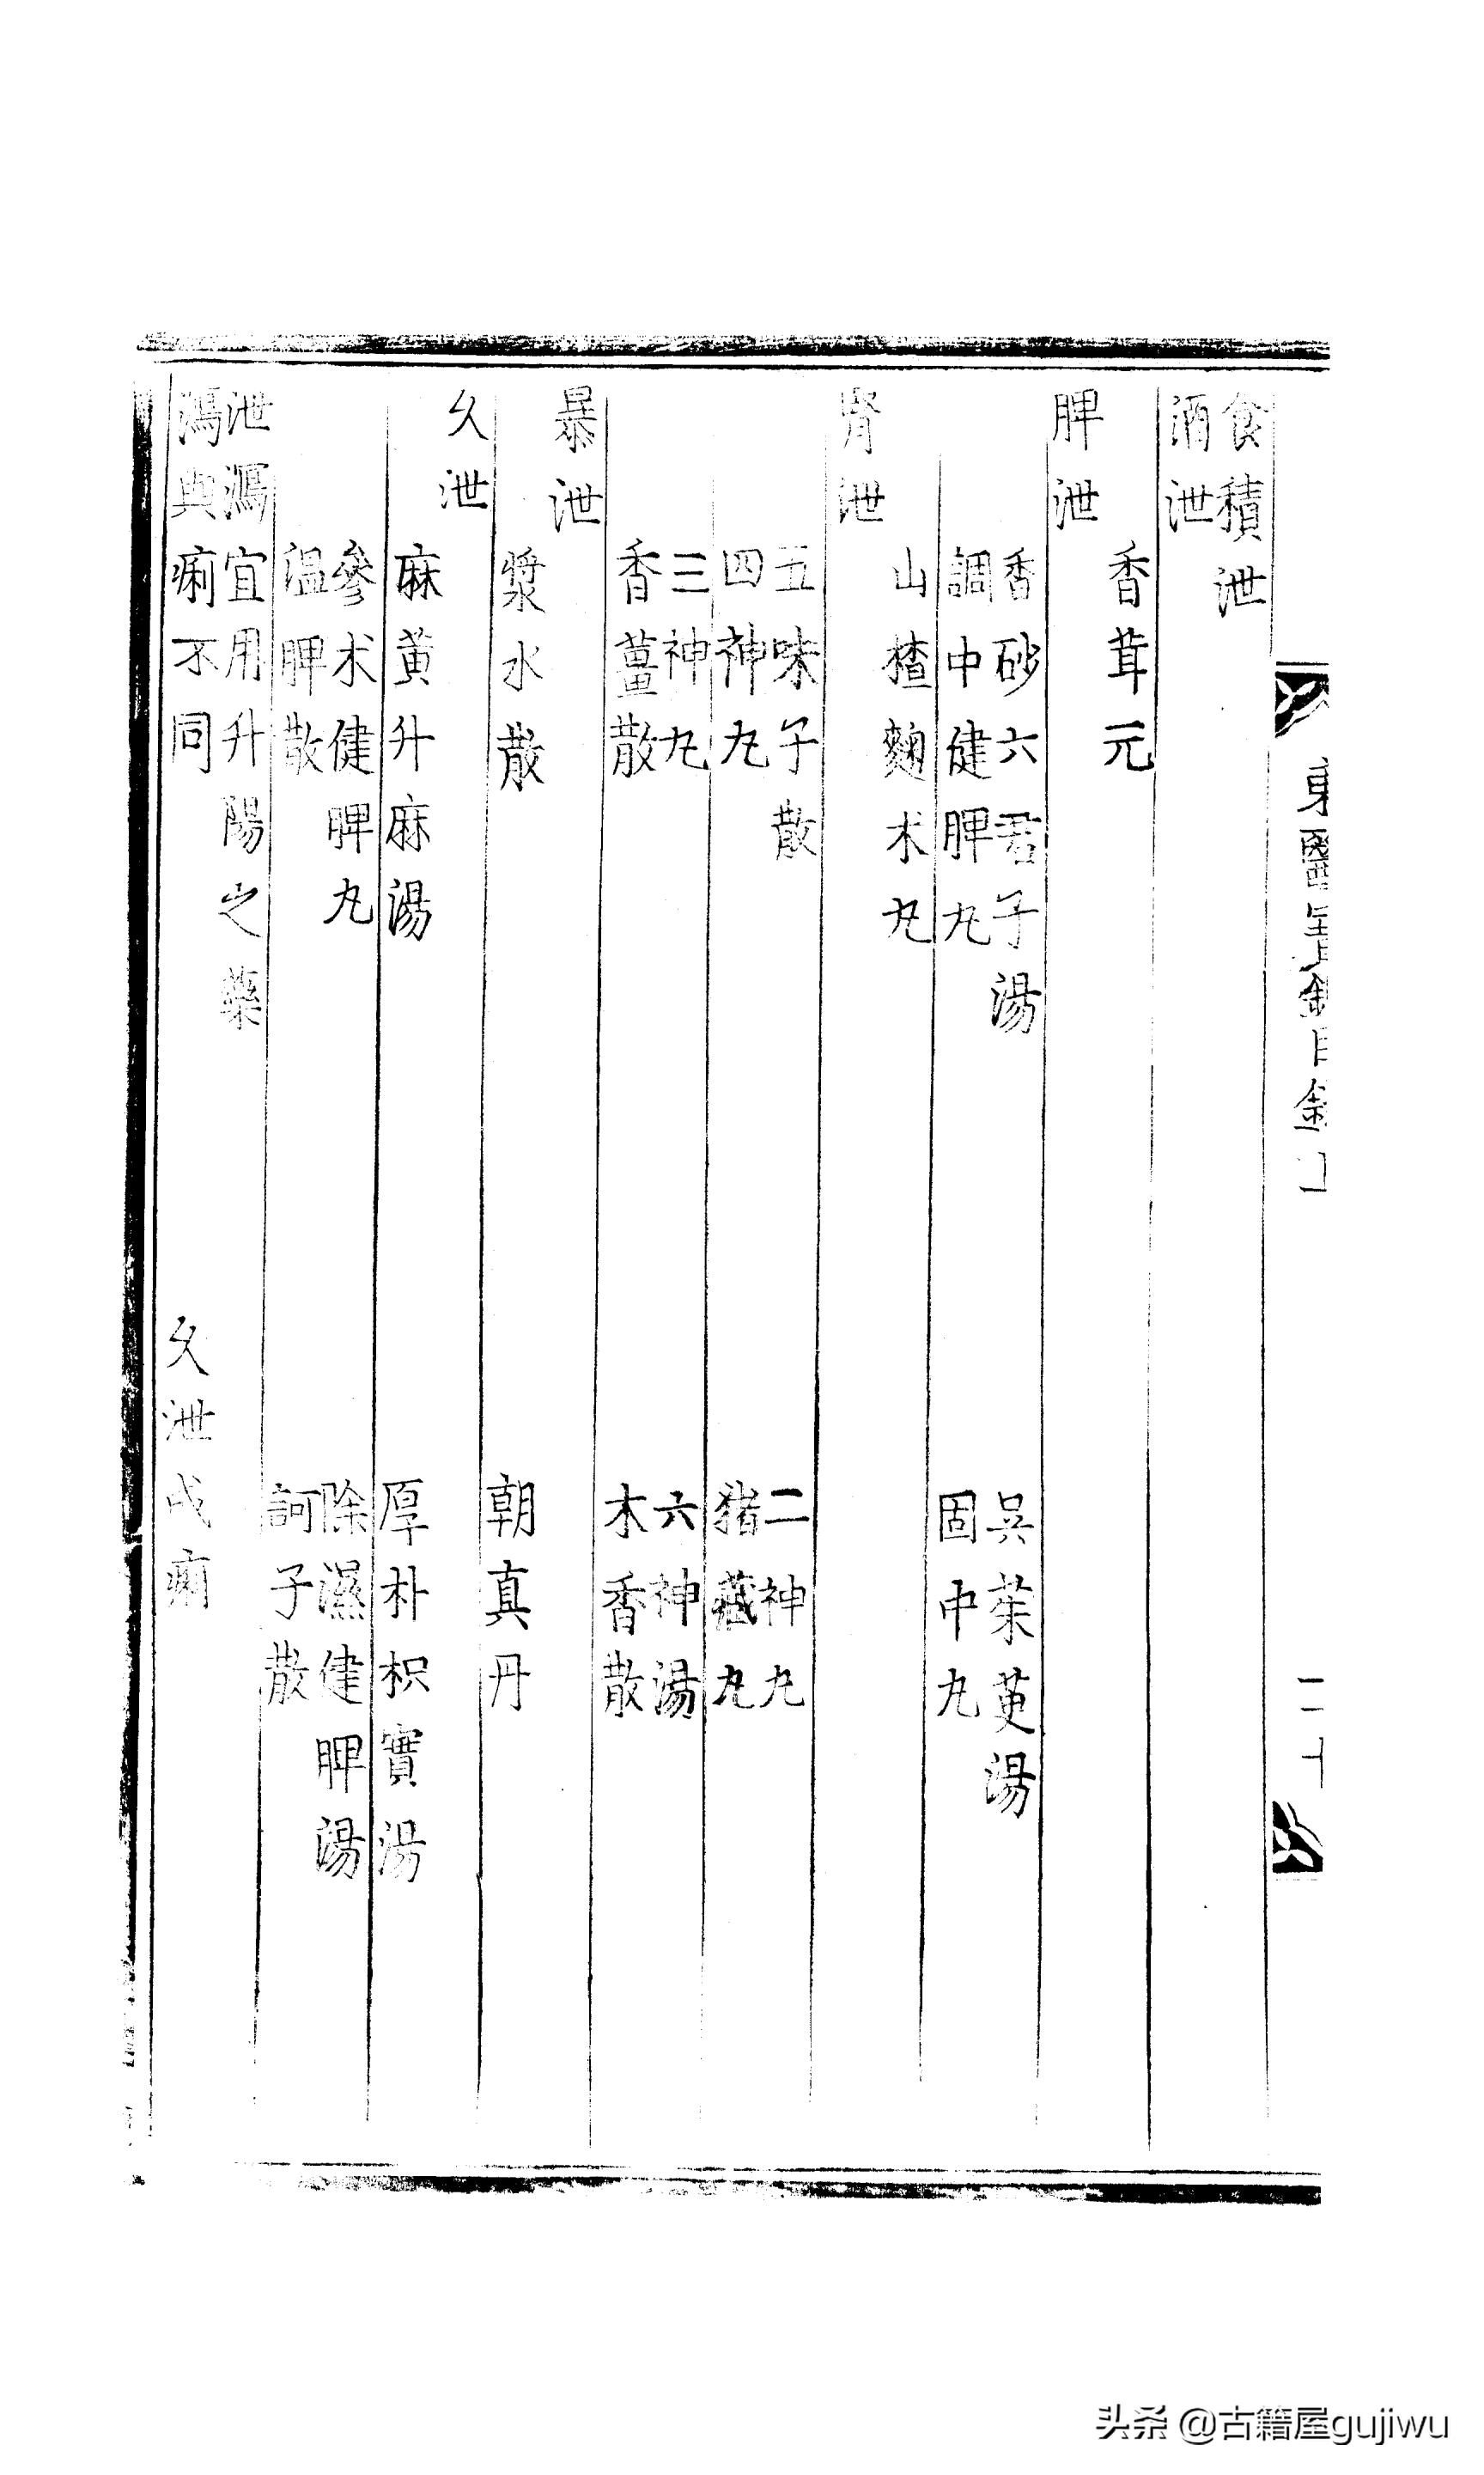 食積泄
酒泄
香茸元
脾泄
香砂六君子湯 吳茱萸湯
調中健脾丸 固中丸
山楂麴朮丸
腎泄
五味子散 二神丸
四神丸 猪藏丸
三神丸 六神湯
香薑散 木香散
暴泄
漿水散 朝真丹
久泄
麻黃升麻湯 厚朴枳實湯
參朮健脾丸 除濕健脾湯
溫脾散 訶子散
泄瀉宜用升陽之藥
瀉與痢不同 久泄成痢
東醫寶鑑目錄
二十
头条 @古籍屋gujiwu